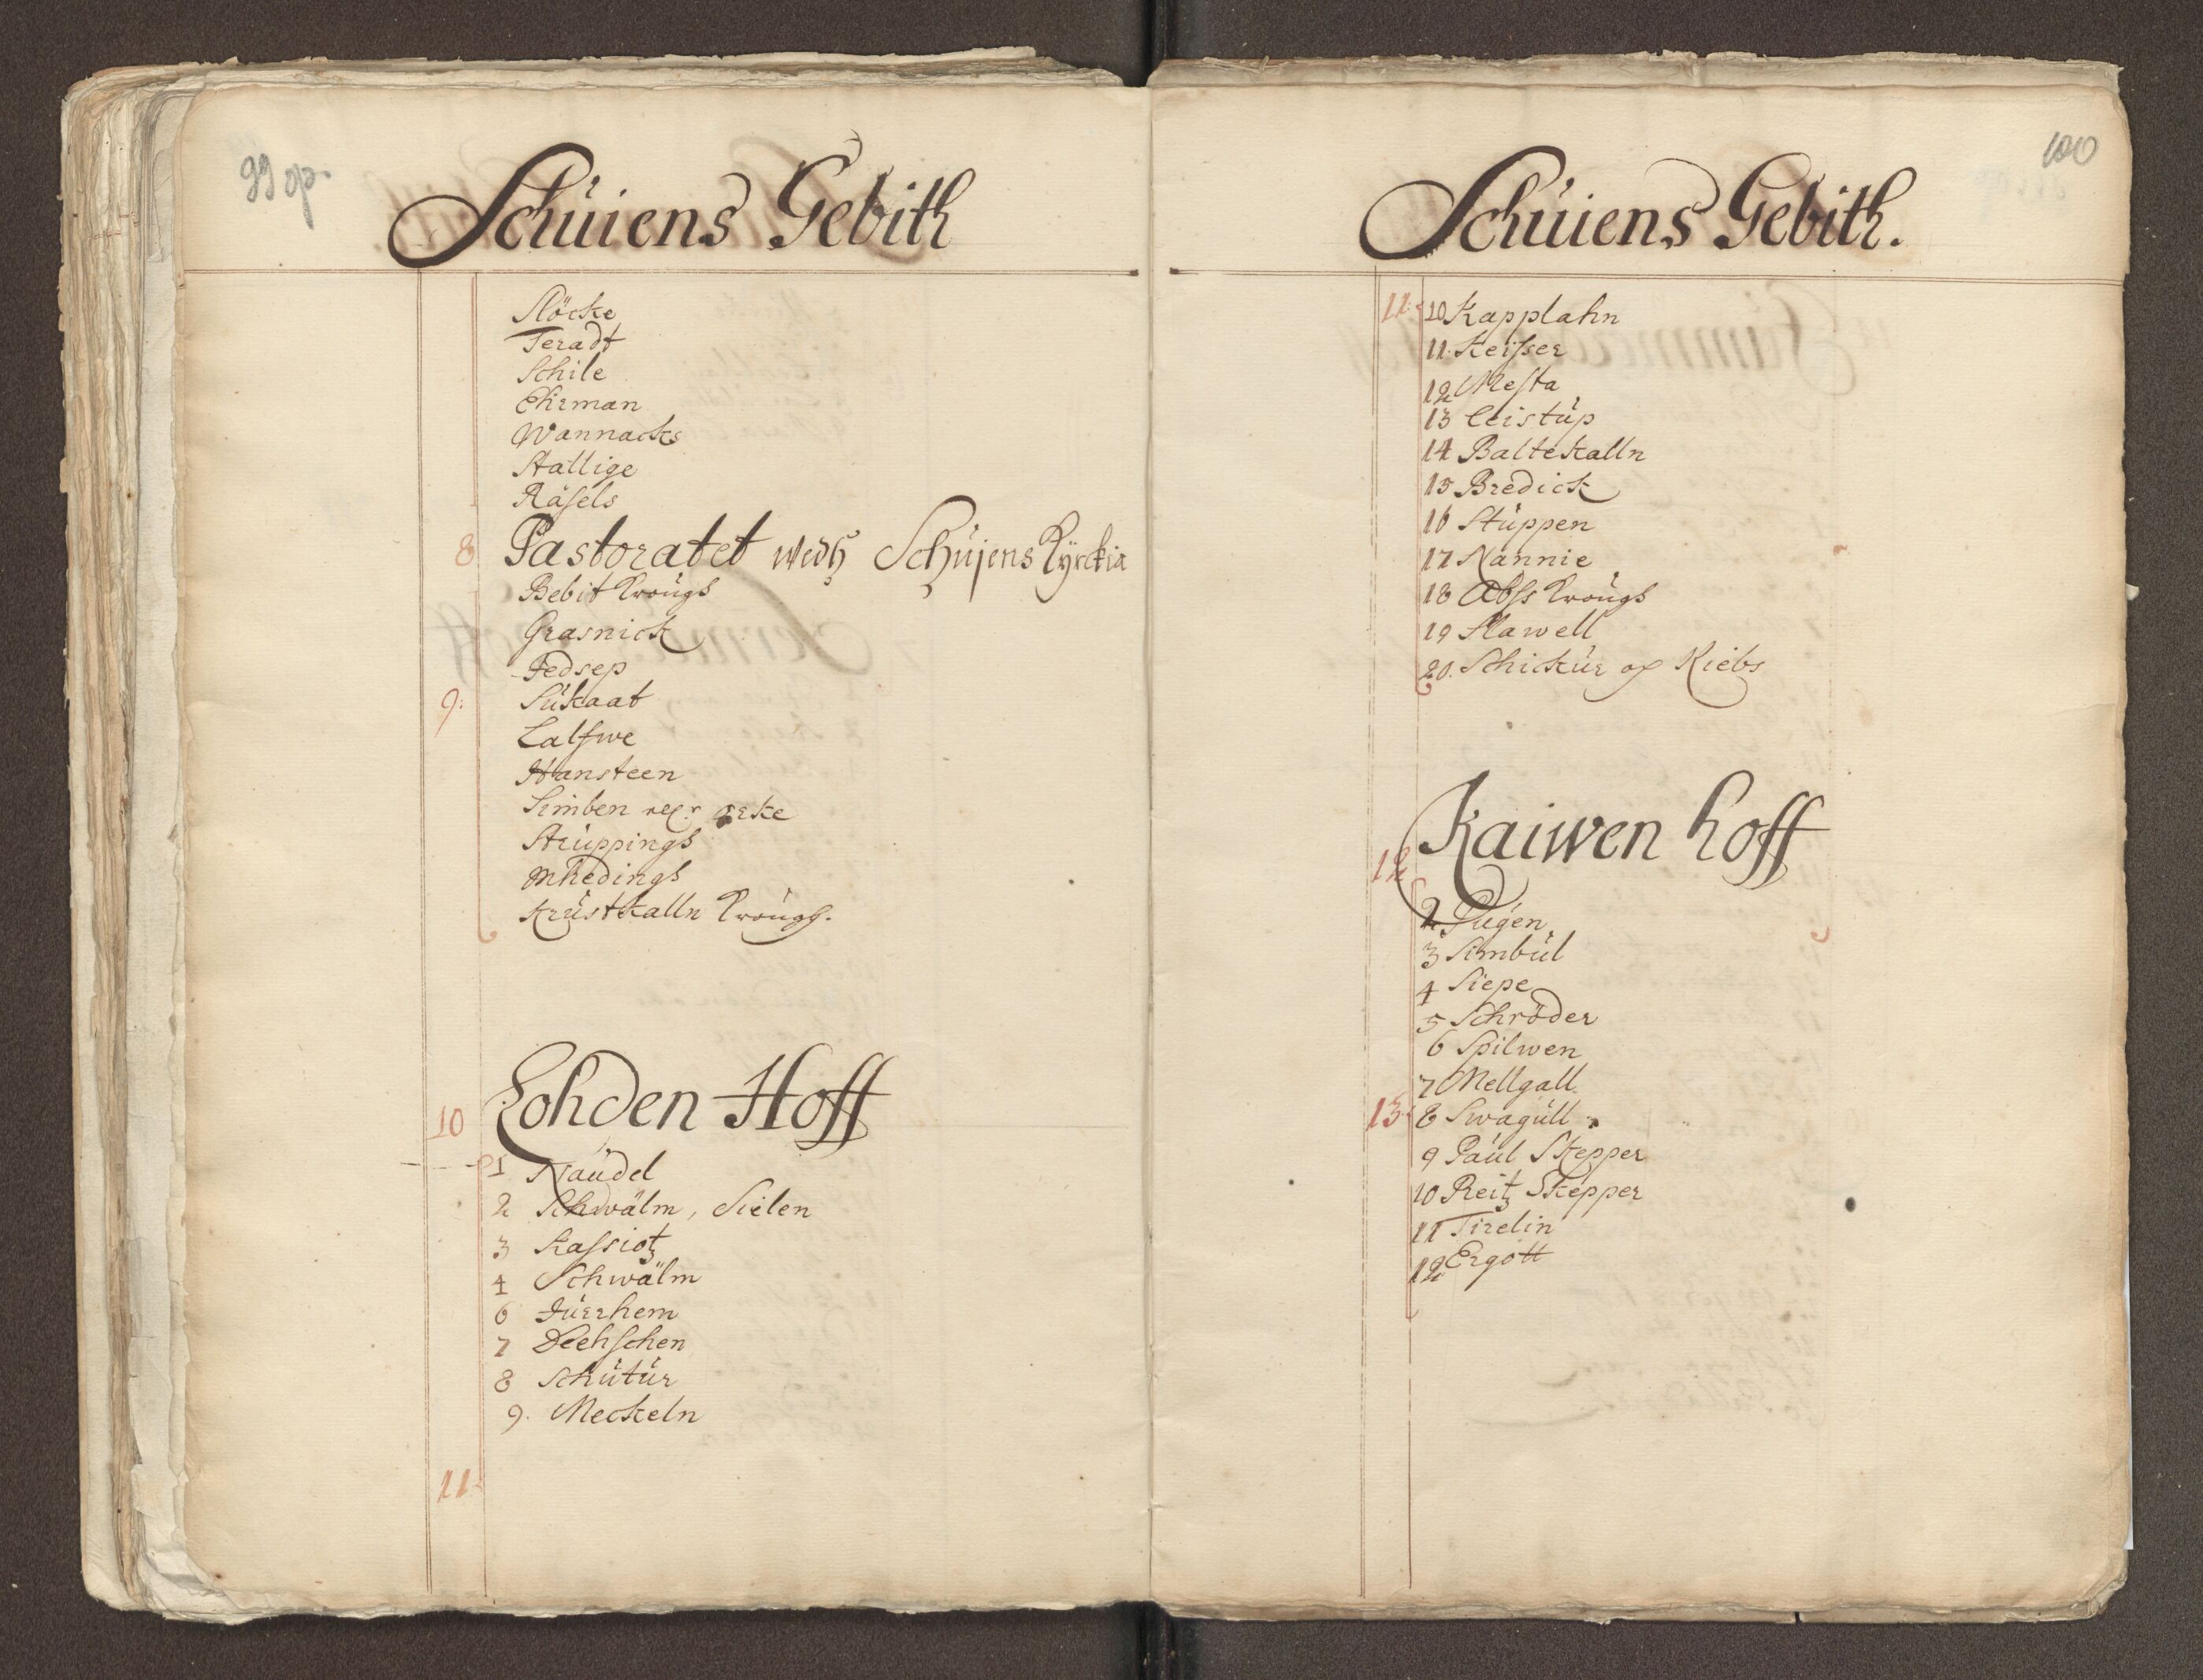 99 op.
Schüiens Gebith
Slöcke
Teradt
Schile
Ehrman
Wannacks
Stallige
Räsels
8 Pastoratet wedh Schüjens Kÿrckia
Bebit Krougs
Grasnick
Jedsep
9: Sükaat
Lalswe
Hansteen
Simben
Strüppings
Mhedings
Krüstkalln Kroúgs.
10 Lohden Hoff
1 Naudel
2 Schwälm, Sielen
3 Kassiotz
4 Schwälm
6 Jürrhem
7 Deehschen
8 Schütür
9. Meckeln
11.
100
Schüiens Gebith.
11. 10 Kapplahn
11. Keisser
12 Mesta
13 Ceistüp
14 Baltekalln
15 Bredick
16 Stüppen
17 Nannie
18 Abss Krougs
19 Slawell
20. Schickür of Kiebs
12 Kaiwen hoff
2 Pugen
3 Simbul
4 Siepe
5 Schröder
6 Spilwen
7 Mellgall
13. 8 Swagüll
9 Paul Skepper
10 Reitz Skepper
11 Tirelin
12 Ergott